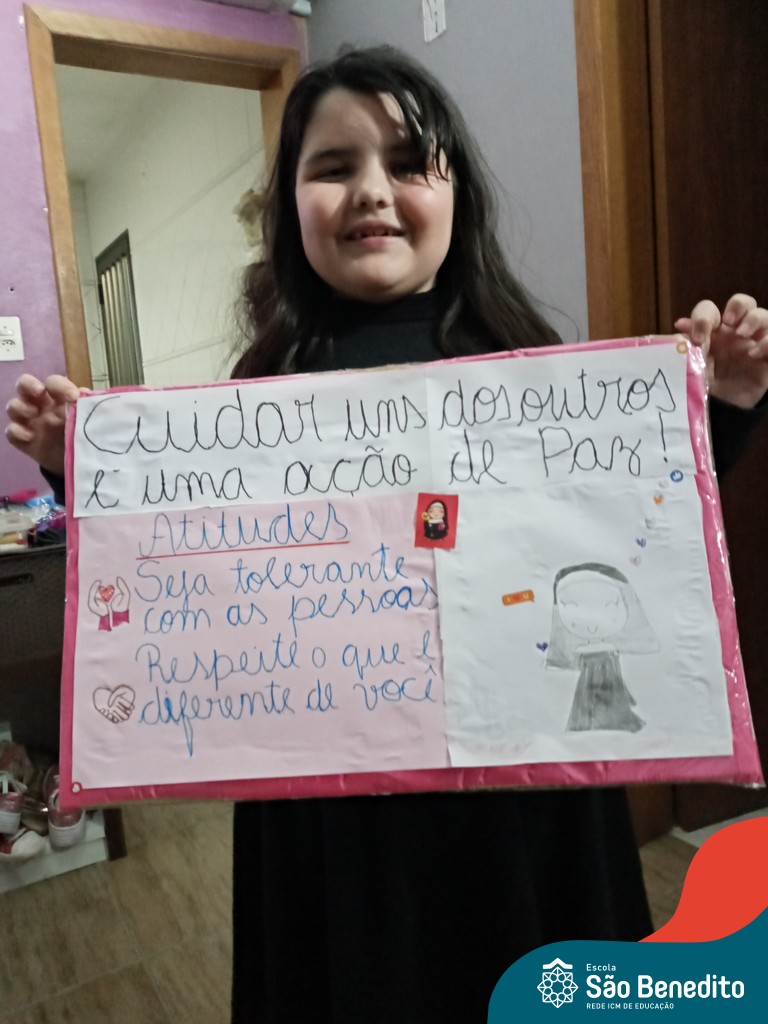 Cuidar uns dos outros
é uma ação de Paz!
Atitudes
Seja tolerante
com as pessoas
Respeite o que é
diferente de você
Escola
São Benedito
REDE ICM DE EDUCAÇÃO